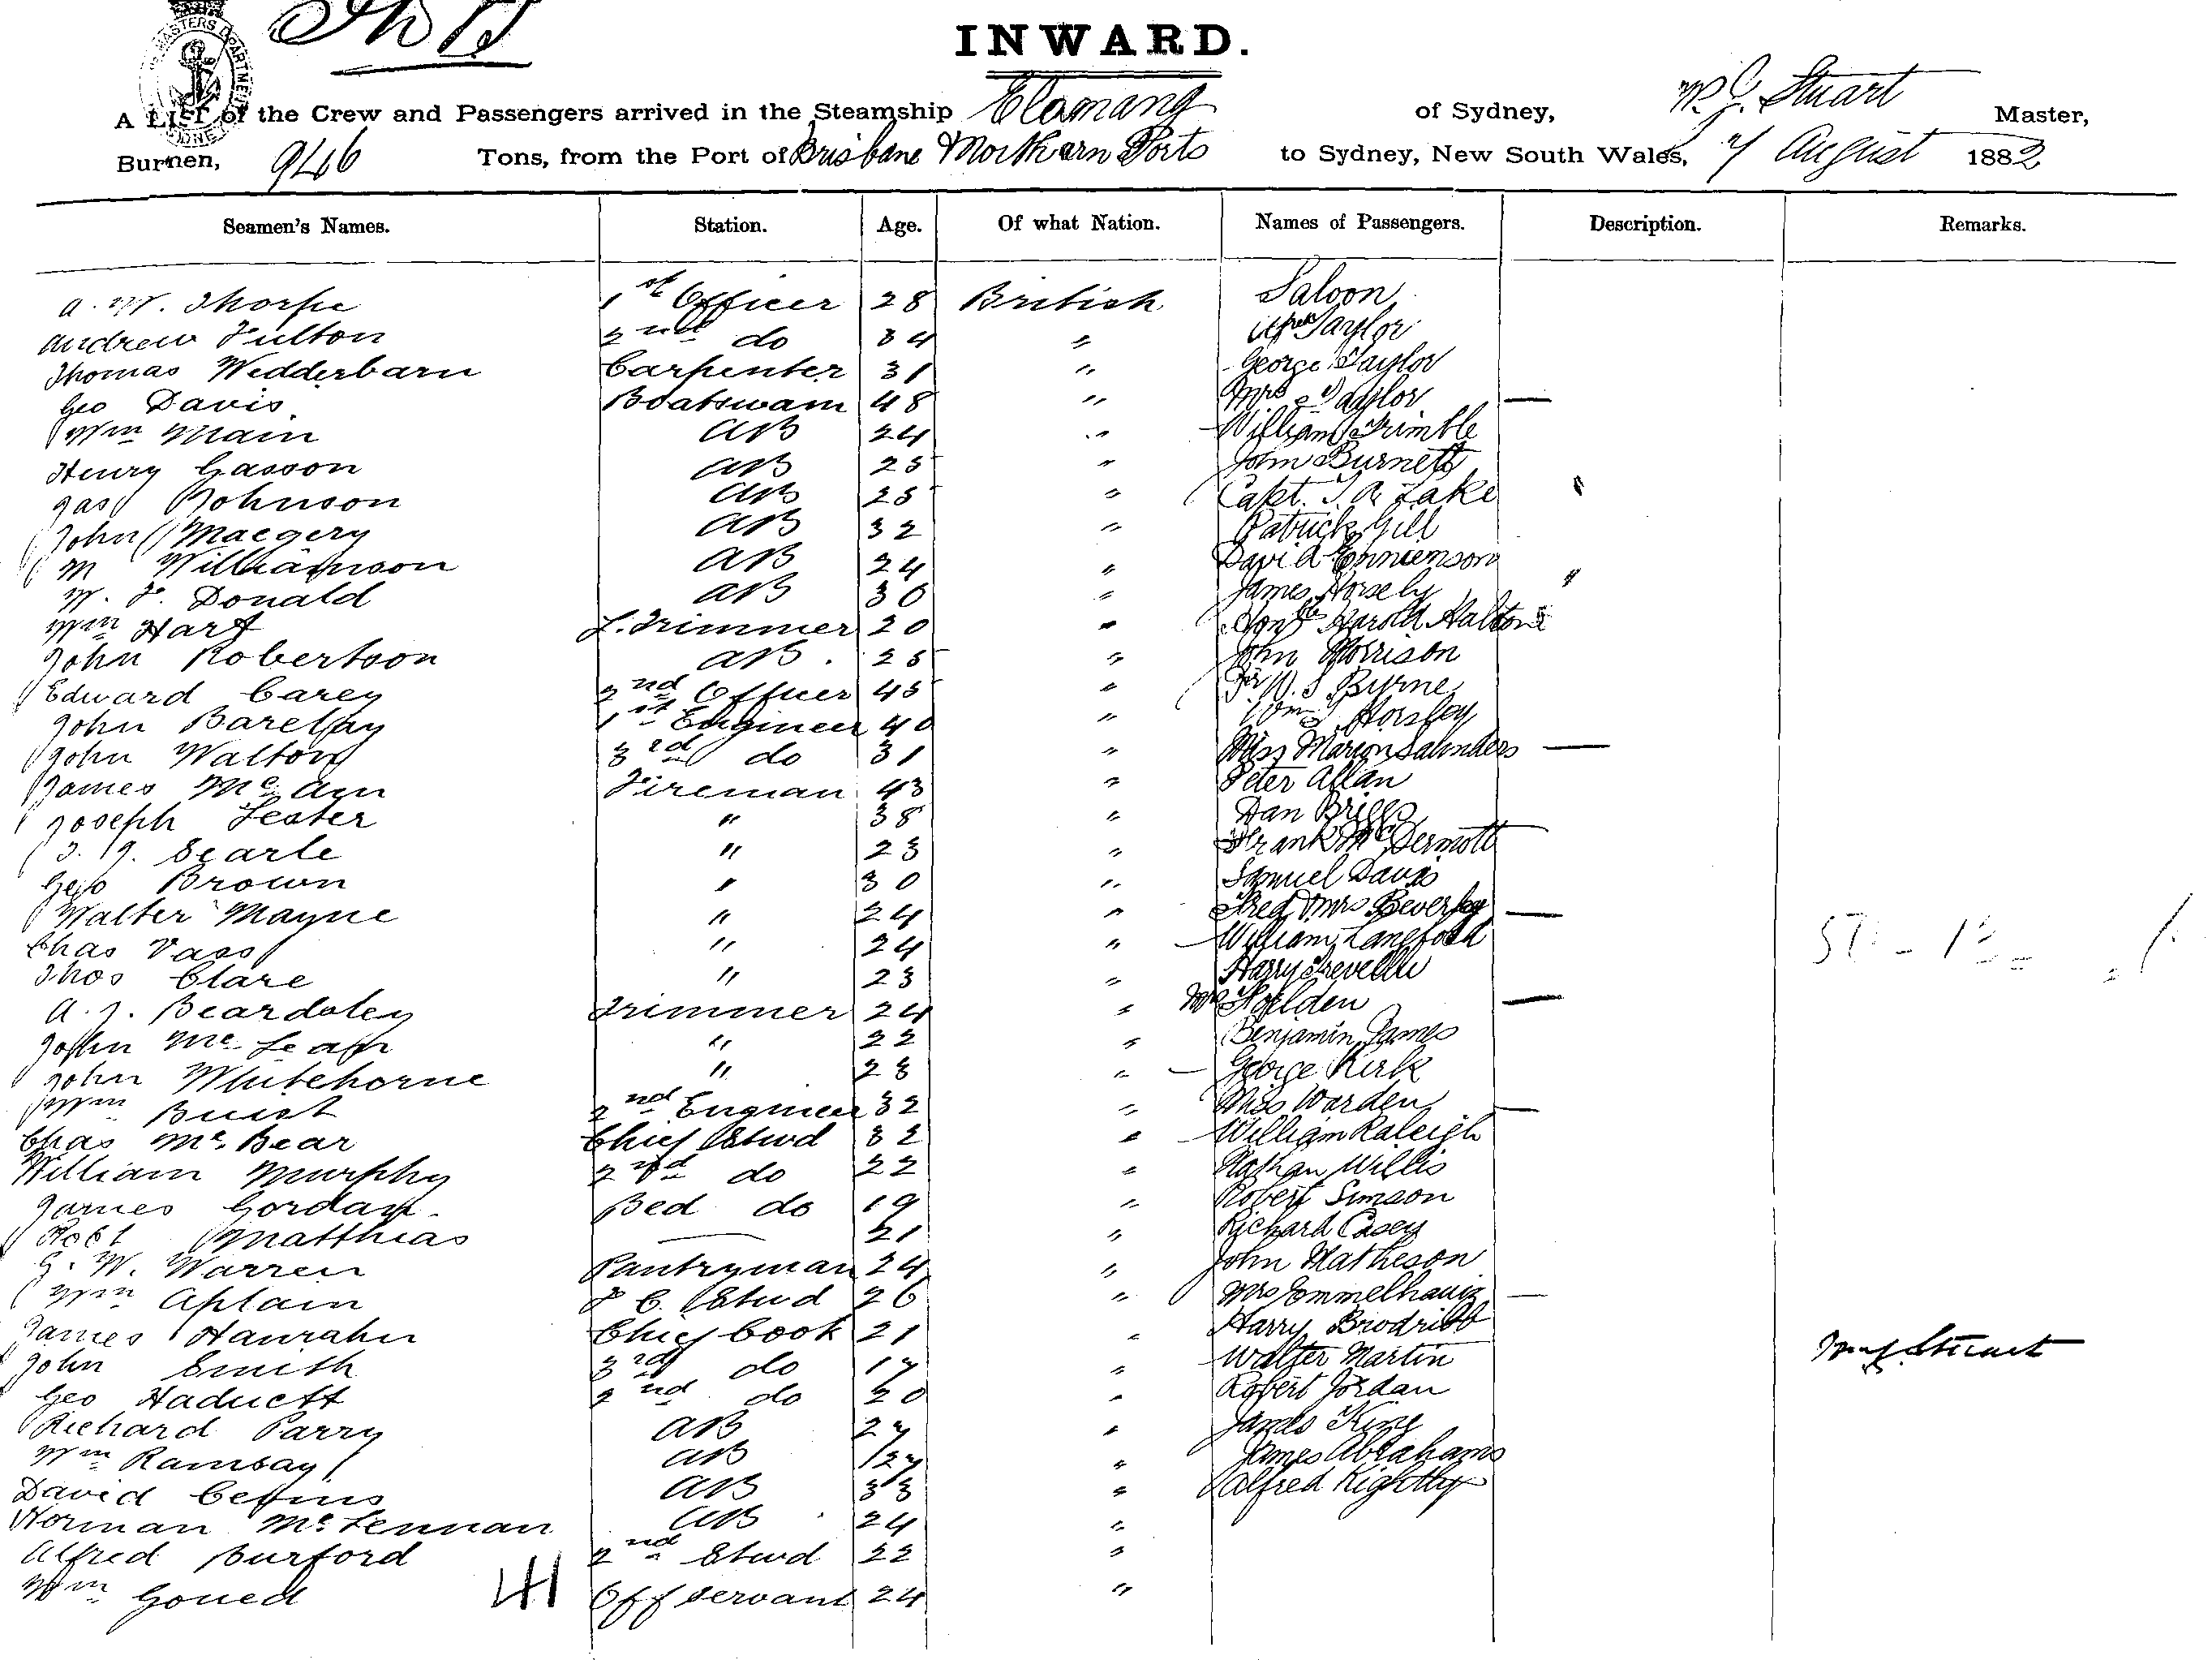 INWARD.
A LIST of the Crew and Passengers arrived in the Steamship Elamang of Sydney, W. G. Stuart Master,
Burthen, 946 Tons, from the Port of Brisbane Northern Ports to Sydney, New South Wales, 7 August 1882
Seamen's Names. Station. Age. Of what Nation. Names of Passengers. Description. Remarks.
A. W. Thorpe 1st Officer 28 British Saloon
Andrew Fulton 2nd do 34 " Taylor
Thomas Wedderbarn Carpenter 31 " George Taylor
Geo Davis Boatswain 48 " Mrs Taylor —
Wm Main AB 24 " William Trimble
Henry Gasson AB 25 " John Burnett
Jas Johnson AB 25 " Capt. T. A. Lake
John Maegery AB 32 " Patrick Gill
M Williamson AB 24 " David
W. F. Donald AB 30 " James Horsely
Wm Hart L. Trimmer 20 " Harold
John Robertson AB 25 " John Morrison
Edward Carey 2nd Officer 45 " W. S Byrne
John Barclay 1st Engineer 40 " Wm Horsley
John Walton 3rd do 31 " Miss Marion Saunders —
James Mc Ann Fireman 43 " Peter Allan
Joseph Lester " 38 " Dan Briggs
T. J. Searle " 23 " Frank McDermott
Geo Brown " 30 " Samuel Davis
Walter Mayne " 24 " Fred Mrs Beverley —
Chas Vass " 24 " William Langford
Thos Clare " 23 " Harry Trevellu
A. J. Beardsley Trimmer 24 " Mrs Holden —
John Mc Lean " 22 " Benjamin James
John Whitehorne " 28 " George Kirk
Wm Buist 2nd Engineer 32 " Miss Warden —
Chas Mc Bear Chief Stwd 32 " William Raleigh
William Murphy 2nd do 22 " Nathan Willis
James Gordan Bed do 19 " Robert Simson
Robt Matthias — 21 " Richard Casey
G. W. Warren Pantryman 24 " John Matheson
Wm Aplain F C. Stwd 26 " Mrs Emmelhauiz —
James Hanrahn Chief Cook 21 " Harry Brodribb
John Smith 3rd do 17 " Walter Martin
Geo Haductt 2nd do 20 " Robert Jordan
Richard Parry AB 27 " James King
Wm Ramsay AB 27 " James Abrahams
David AB 33 " Alfred
Norman McLennan AB 24 "
Alfred Burford 2nd Stwd 22 "
Wm Goued Off servant 24 "